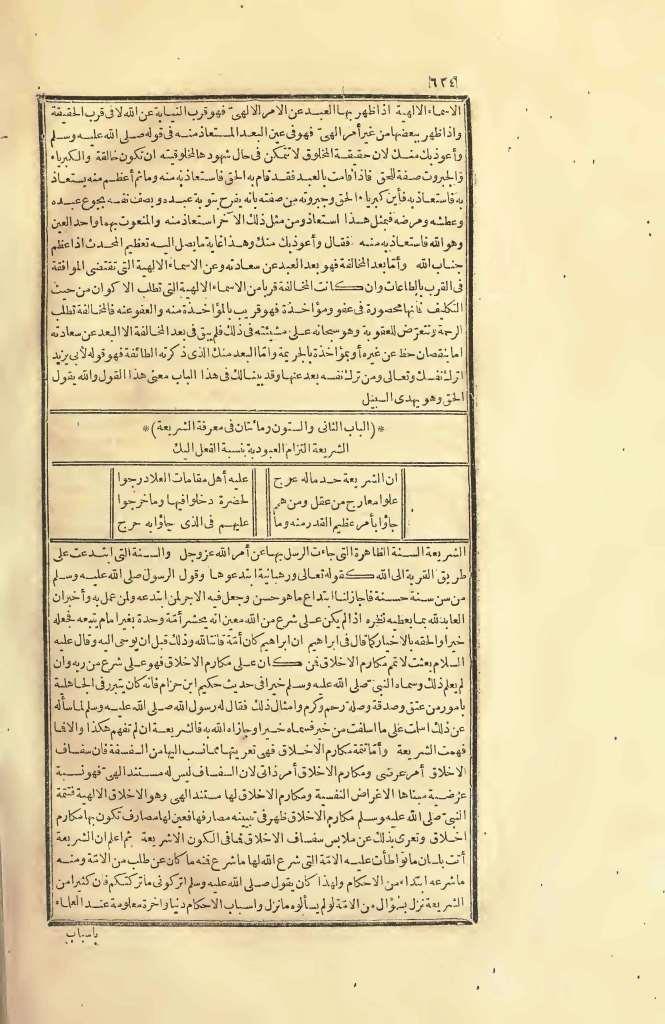 ٦٢٤
الاسماء الالهية اذا ظهر بها العبد عن الامر الالهي فهو قرب النيابة عن الله لا في قرب الحقيقة
واذا ظهر ببعضها من غير أمر الهي فهو في عين البعد المستعاذ منه في قوله صلى الله عليه وسلم
وأعوذ بك منك لان حقيقة المخلوق لا تتمكن في حال شهودها لمخلوقيته ان تكون خالقة والكبرياء
والجبروت صفة للحق فاذا قامت بالعبد فقد قام به الحق فاستعاذ به منه وما ثم أعظم منه يستعاذ
به فاستعاذ به فأين كبرياء الحق وجبروته من صفته بأنه يفرح بتوبة عبده ويصف نفسه بجوع عبده
وعطشه ومرضه فبمثل هذا استعاذ ومن مثل ذلك الآخر استعاذ منه والمنعوت بهما واحد العين
وهو الله فاستعاذ به منه فقال وأعوذ بك منك وهذا غاية ما يصل اليه تعظيم المحدث اذا عظم
جناب الله وأمّا بعد المخالفة فهو بعد العبد عن سعادته وعن الاسماء الالهية التي تقتضي الموافقة
في القرب بالطاعات وان كانت المخالفة قربا من الاسماء الالهية التي تطلب الاكوان من حيث
التكليف فانها محصورة في عفو ومؤاخذة فهو قريب بالمؤاخذة منه والعفو عنه فالمخالفة تطلب
الرحمة وتتعرّض للعقوبة وهو سبحانه على مشيئته في ذلك فلم يبق في بعد المخالفة الا البعد عن سعادته
اما بنقصان حظ عن غيره أو بمؤاخذة بالجريمة وأمّا البعد منك الذي ذكرته الطائفة فهو قوله لأبي يزيد
اترك نفسك وتعالى ومن ترك نفسه بعد عنها وقد بينا لك في هذا الباب معنى هذا القول والله يقول
الحق وهو يهدي السبيل
* (الباب الثاني والستون ومائتان في معرفة الشريعة) *
الشريعة التزام العبودية بنسبة الفعل اليك
ان الشريعة حد ماله عرج عليه أهل مقامات العلا درجوا
علوا معارج من عقل ومن همم لحضرة دخلوا فيها وما خرجوا
جاؤا بأمر عظيم القدر منه وما عليهم في الذي جاؤا به حرج
الشريعة السنة الظاهرة التي جاءت الرسل بها عن أمر الله عز وجل والسنة التي ابتدعت على
طريق القربة الى الله كقوله تعالى ورهبانية ابتدعوها وقول الرسول صلى الله عليه وسلم
من سن سنة حسنة فأجاز لنا ابتداع ما هو حسن وجعل فيه الاجر لمن ابتدعه ولمن عمل به وأخبر ان
العابد لله بما يعطيه نظره اذا لم يكن على شرع من الله معين انه يحشر أمّة وحده بغير امام يتبعه فجعله
خيرا وألحقه بالاخيار كما قال في ابراهيم ان ابراهيم كان أمّة قانتا لله وذلك قبل ان يوحى اليه وقال عليه
السلام بعثت لاتمم مكارم الاخلاق فمن كان على مكارم الاخلاق فهو على شرع من ربه وان
لم يعلم ذلك وسماه النبي صلى الله عليه وسلم خيرا في حديث حكيم ابن حزام فانه كان يتبرر في الجاهلية
بأمور من عتق وصدقة وصلة رحم وكرم وأمثال ذلك فقال له رسول الله صلى الله عليه وسلم لما سأله
عن ذلك أسلمت على ما أسلفت من خير فسماه خيرا وجازاه الله به فالشريعة ان لم تفهم هكذا والا فما
فهمت الشريعة وأمّا تتمة مكارم الاخلاق فهي تعريتها مما نسب اليها من السفسفة فان سفساف
الاخلاق أمر عرضي ومكارم الاخلاق أمر ذاتي لان السفساف ليس له مستند الهي فهو نسبة
عرضية مبناها الاغراض النفسية ومكارم الاخلاق لها مستند الهي وهو الاخلاق الالهية فتتمة
النبي صلى الله عليه وسلم مكارم الاخلاق ظهر في تبيينه مصارفها فعين لها مصارف تكون بها مكارم
اخلاق وتعرى بذلك عن ملابس سفساف الاخلاق فما في الكون الا شريعة ثم اعلم ان الشريعة
أتت بلسان ما تواطأت عليه الامّة التي شرع الله لها ما شرع فمنه ما كان عن طلب من الامّة ومنه
ما شرعه ابتداء من الاحكام ولهذا كان يقول صلى الله عليه وسلم اتركوني ما تركتكم فان كثيرا من
الشريعة نزل بسؤال من الامّة لو لم يسألوه ما نزل وأسباب الاحكام دنيا وآخرة معلومة عند العلماء
بأسباب